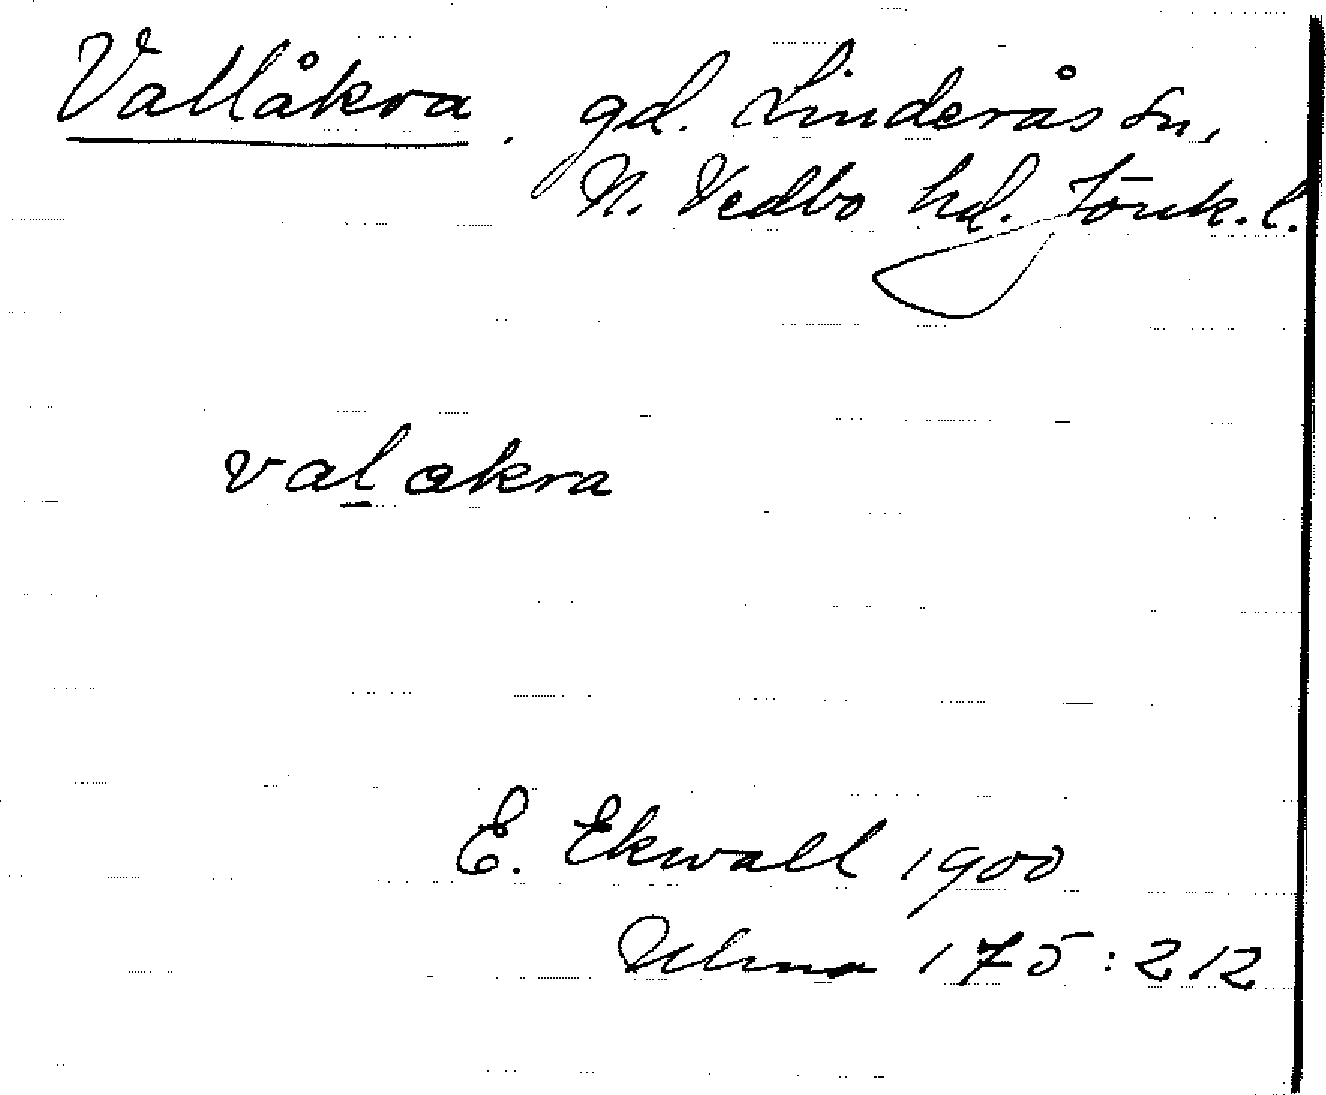 Vallåkra. gd. Linderås sn,
N. Vedbo hd. Jönk. l.
val akra
E. Ekwall 1900
Ulma 175:212